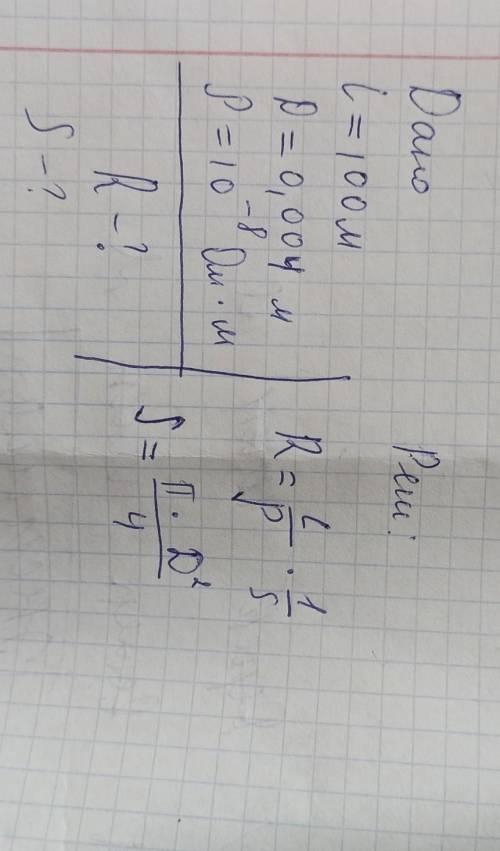 Дано
l = 100 м
D = 0,004 м
ρ = 10⁻⁸ Ом · м
R - ?
S - ?
Реш:
R = l/ρ · 1/S
S = π · D²/4